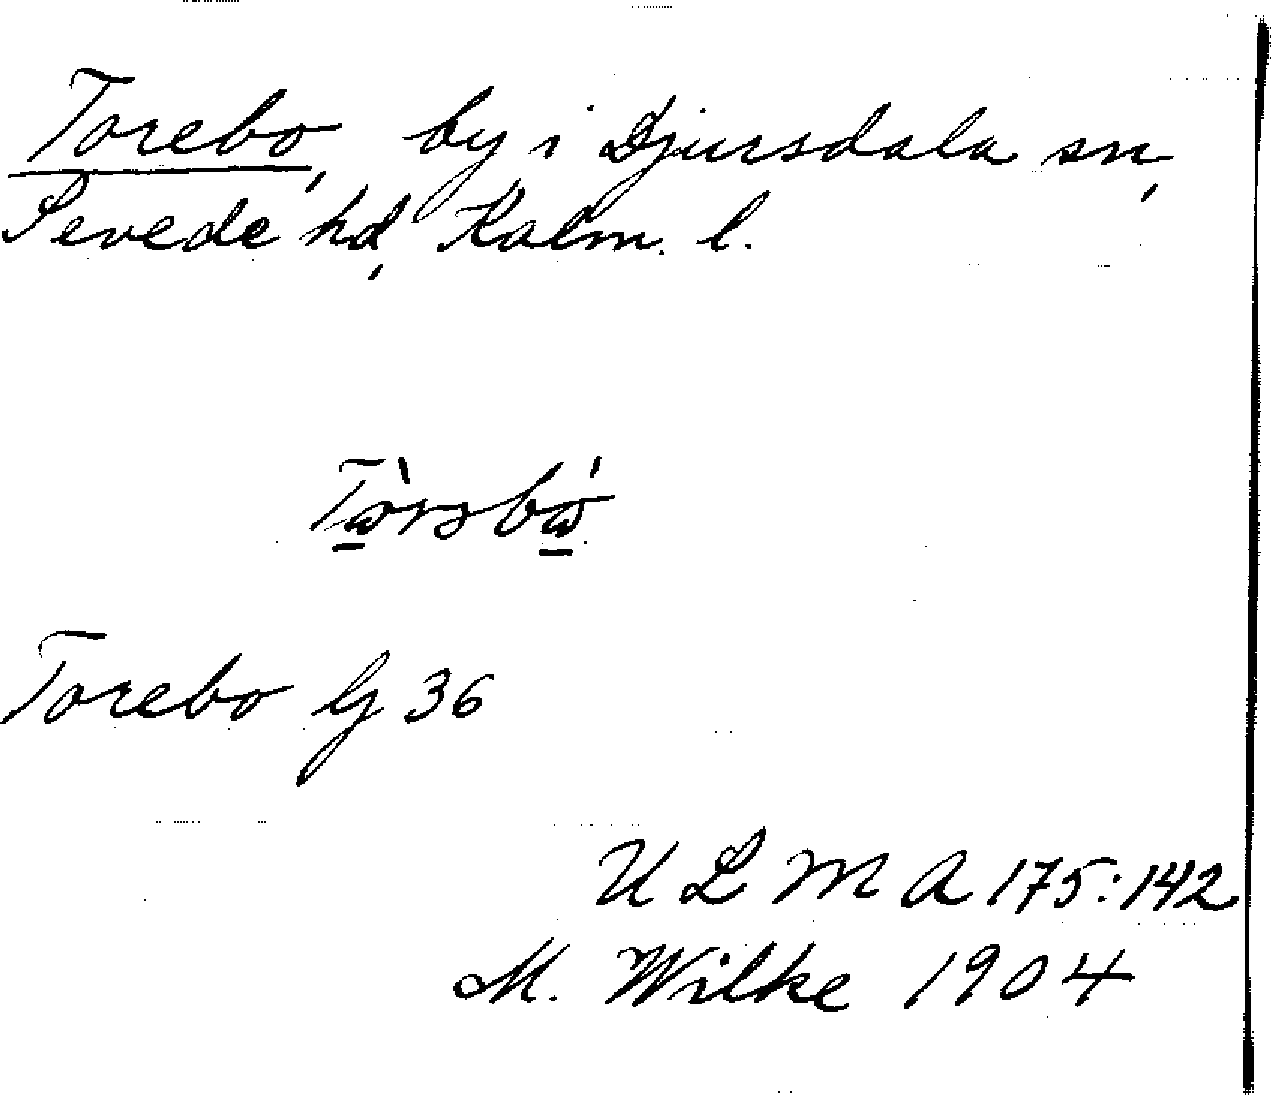 Torebo, by i Djursdala sn,
Sevede hd, Kalm. l.
Torebo G 36
U L M A 175:142
M. Wilke 1904